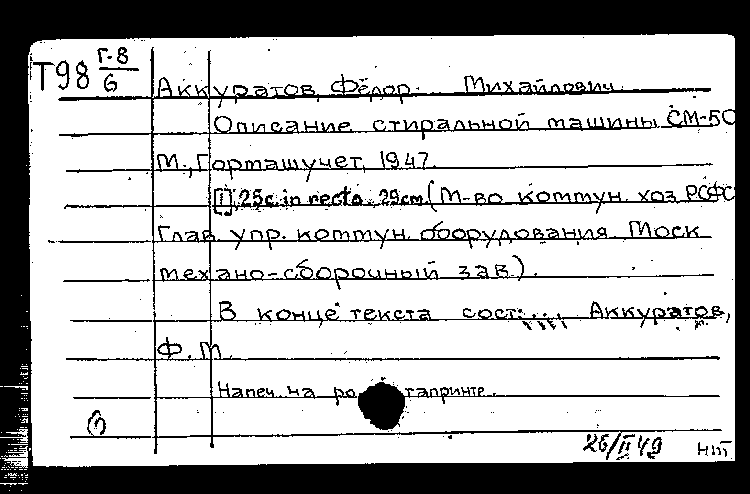 Т98 Г-8/6
Аккуратов, Фёдор Михайлович.
Описание стиральной машины СМ-50
М., Гормашучет, 1947.
[1], 25 с. in recto. 29 cm (М-во коммун. хоз. РСФС
Глав. упр. коммун. оборудования. Моск
механо-сборочный зав.).
В конце текста сост.: ... Аккуратов,
Ф. М.
Напеч. на ро тапринте.
26/II 49 НП